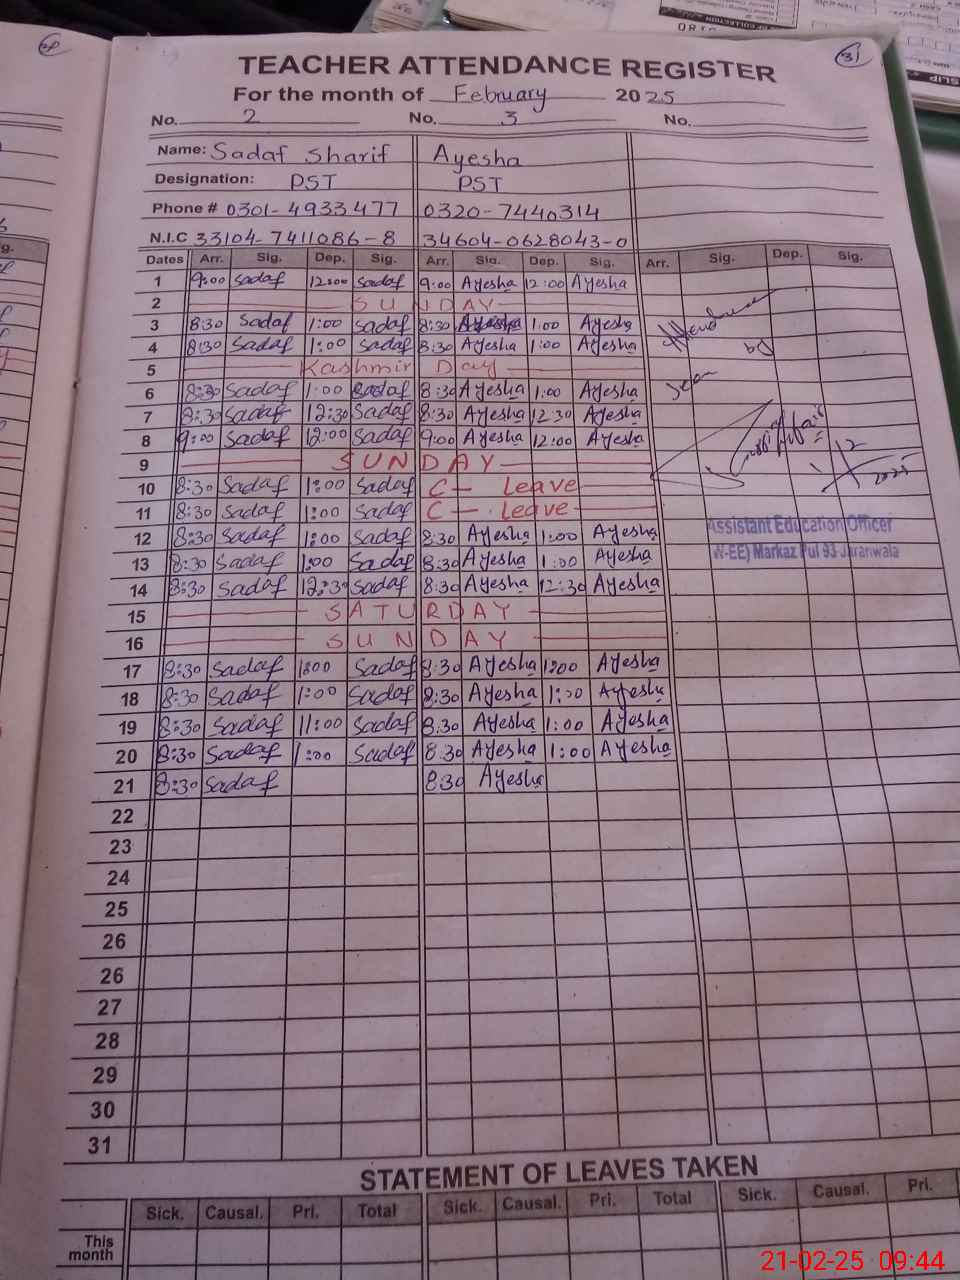 31
TEACHER ATTENDANCE REGISTER
For the month of February 2025
No. 2 No. 3 No.
Name: Sadaf Sharif Ayesha
Designation: PST PST
Phone # 0301-4933477 0320-7440314
N.I.C 33104-7411086-8 34604-0628043-0
Dates Arr. Sig. Dep. Sig. Arr. Sig. Dep. Sig. Arr. Sig. Dep. Sig.
1 9:00 Sadaf 12:00 Sadaf 9:00 Ayesha 12:00 Ayesha
2 SUNDAY
3 8:30 Sadaf 1:00 Sadaf 8:30 Ayesha 1:00 Ayesha
4 8:30 Sadaf 1:00 Sadaf 8:30 Ayesha 1:00 Ayesha
5 Kashmir Day
6 8:30 Sadaf 1:00 Sadaf 8:30 Ayesha 1:00 Ayesha
7 8:30 Sadaf 12:30 Sadaf 8:30 Ayesha 12:30 Ayesha
8 9:00 Sadaf 12:00 Sadaf 9:00 Ayesha 12:00 Ayesha
9 SUNDAY
10 8:30 Sadaf 1:00 Sadaf C- Leave
11 8:30 Sadaf 1:00 Sadaf C- Leave
12 8:30 Sadaf 1:00 Sadaf 8:30 Ayesha 1:00 Ayesha
Assistant Education Officer
13 8:30 Sadaf 1:00 Sadaf 8:30 Ayesha 1:00 Ayesha
(W-EE) Markaz Pul 93 Jaranwala
14 8:30 Sadaf 12:30 Sadaf 8:30 Ayesha 12:30 Ayesha
15 SATURDAY
16 SUNDAY
17 8:30 Sadaf 1:00 Sadaf 8:30 Ayesha 1:00 Ayesha
18 8:30 Sadaf 1:00 Sadaf 8:30 Ayesha 1:00 Ayesha
19 8:30 Sadaf 11:00 Sadaf 8:30 Ayesha 1:00 Ayesha
20 8:30 Sadaf 1:00 Sadaf 8:30 Ayesha 1:00 Ayesha
21 8:30 Sadaf 830 Ayesha
22
23
24
25
26
26
27
28
29
30
31
STATEMENT OF LEAVES TAKEN
Sick. Causal. Pri. Total Sick. Causal. Pri. Total Sick. Causal. Pri.
This
month
21-02-25 09:44